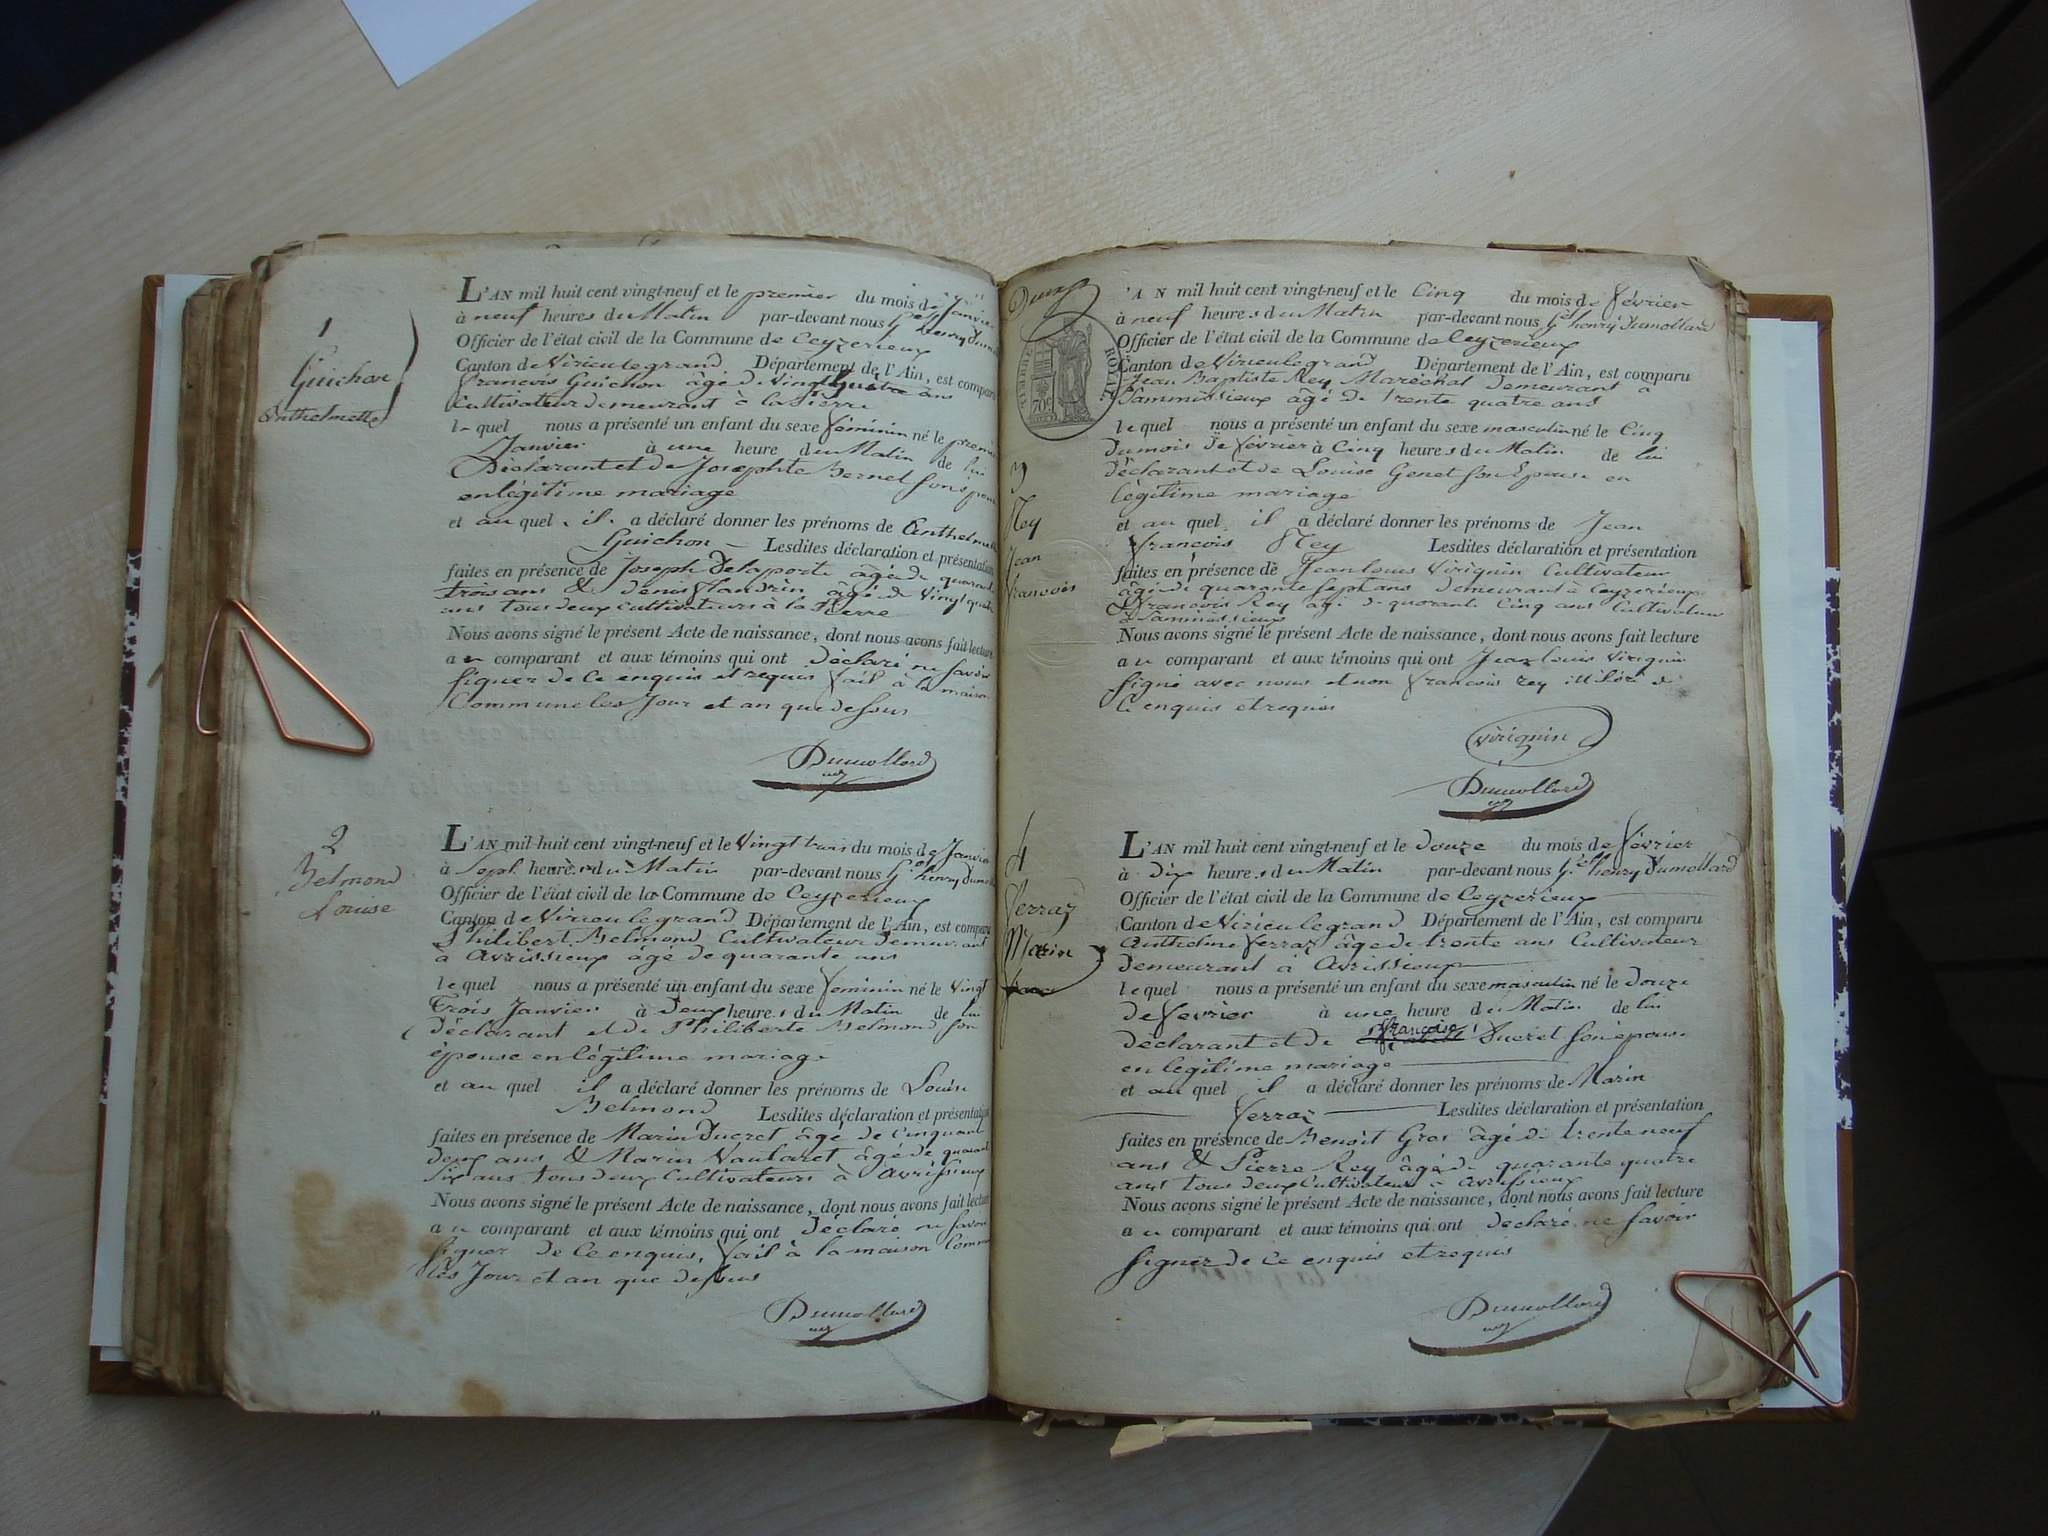 1
Guichon
Anthelmette
L'AN mil huit cent vingt-neuf et le premier du mois de Janvier
à neuf heures du Matin par-devant nous G.el henry Dumollard
Officier de l'état civil de la Commune de Ceyzerieux
Canton de Virieulegrand Département de l'Ain, est comparu
francois Guichon âgé de vingt quatre ans
Cultivateur demeurant à la Pierre
lequel nous a présenté un enfant du sexe féminin né le premier
Janvier à une heure du Matin de lui
Déclarant et de Josephte Bernet son épouse
en légitime mariage
et au quel il a déclaré donner les prénoms de Anthelmette
Guichon Lesdites déclaration et présentation
faites en présence de Joseph Delaporte âgé de quarante
trois ans & denis flandrin âgé de vingt quatre
ans tous deux cultivateurs à la Pierre
Nous avons signé le présent Acte de naissance, dont nous avons fait lecture
au comparant et aux témoins qui ont Déclaré ne savoir
signer de ce enquis et requis fait à la maison
Commune les Jour et an que dessus
Dumollard
2
Belmond
Louise
L'AN mil huit cent vingt-neuf et le Vingt trois du mois de Janvier
à Sept heures du Matin par-devant nous G.el henry Dumollard
Officier de l'état civil de la Commune de Ceyzerieux
Canton de Virieulegrand Département de l'Ain, est comparu
Philibert Belmond Cultivateur demeurant
à Avrissieux âgé de quarante ans
lequel nous a présenté un enfant du sexe feminin né le vingt
Trois Janvier à Deux heures du Matin de lui
déclarant et de Philiberte Belmond son
épouse en légitime mariage
et au quel il a déclaré donner les prénoms de Louise
Belmond Lesdites déclaration et présentation
faites en présence de Marin Ducret âgé de Cinquante
deux ans & Marin Vautaret âgé de quarante
Six ans tous deux Cultivateurs à Avrissieux
Nous avons signé le présent Acte de naissance, dont nous avons fait lecture
au comparant et aux témoins qui ont Déclaré ne savoir
signer de ce enquis, fait à la maison Commune
les Jour et an que dessus
Dumollard
TIMBRE ROYAL
70c
3
Rey
Jean
francois
'AN mil huit cent vingt-neuf et le Cinq du mois de février
à neuf heures du Matin par-devant nous G.el henry Dumollard
Officier de l'état civil de la Commune de Ceyzerieux
Canton de Virieulegrand Département de l'Ain, est comparu
Jean Baptiste Rey Maréchal demeurant à
Sammissieux âgé de trente quatre ans
lequel nous a présenté un enfant du sexe masculin né le Cinq
du mois de février à Cinq heures du Matin de lui
déclarant et de Louise Genet son Epouse en
légitime mariage
et au quel il a déclaré donner les prénoms de Jean
francois Rey Lesdites déclaration et présentation
faites en présence de Jean louis Viriguin Cultivateur
âgé de quarante sept ans demeurant à Ceyzerieux
& francois Rey âgé de quarante Cinq ans Cultivateur
à Sammissieux
Nous avons signé le présent Acte de naissance, dont nous avons fait lecture
au comparant et aux témoins qui ont Jean louis Viriguin
signé avec nous et non francois rey illiteré de
Ce enquis et requis
viriguin
Dumollard
4
Ferraz
Marin
L'AN mil huit cent vingt-neuf et le douze du mois de février
à dix heures du Matin par-devant nous G.el henry Dumollard
Officier de l'état civil de la Commune de Ceyzerieux
Canton de Virieulegrand Département de l'Ain, est comparu
Anthelme ferraz âgé de trente ans Cultivateur
demeurant à Avrissieux
lequel nous a présenté un enfant du sexe masculin né le douze
de février à une heure du Matin de lui
déclarant et de francoise Ducret son épouse
en légitime mariage
et au quel il a déclaré donner les prénoms de Marin
ferraz Lesdites déclaration et présentation
faites en présence de Benoit Gros âgé de trente neuf
ans & Pierre Rey âgé de quarante quatre
ans tous deux Cultivateurs à Avrissieux
Nous avons signé le présent Acte de naissance, dont nous avons fait lecture
au comparant et aux témoins qui ont déclaré ne savoir
signer de ce enquis et requis
Dumollard